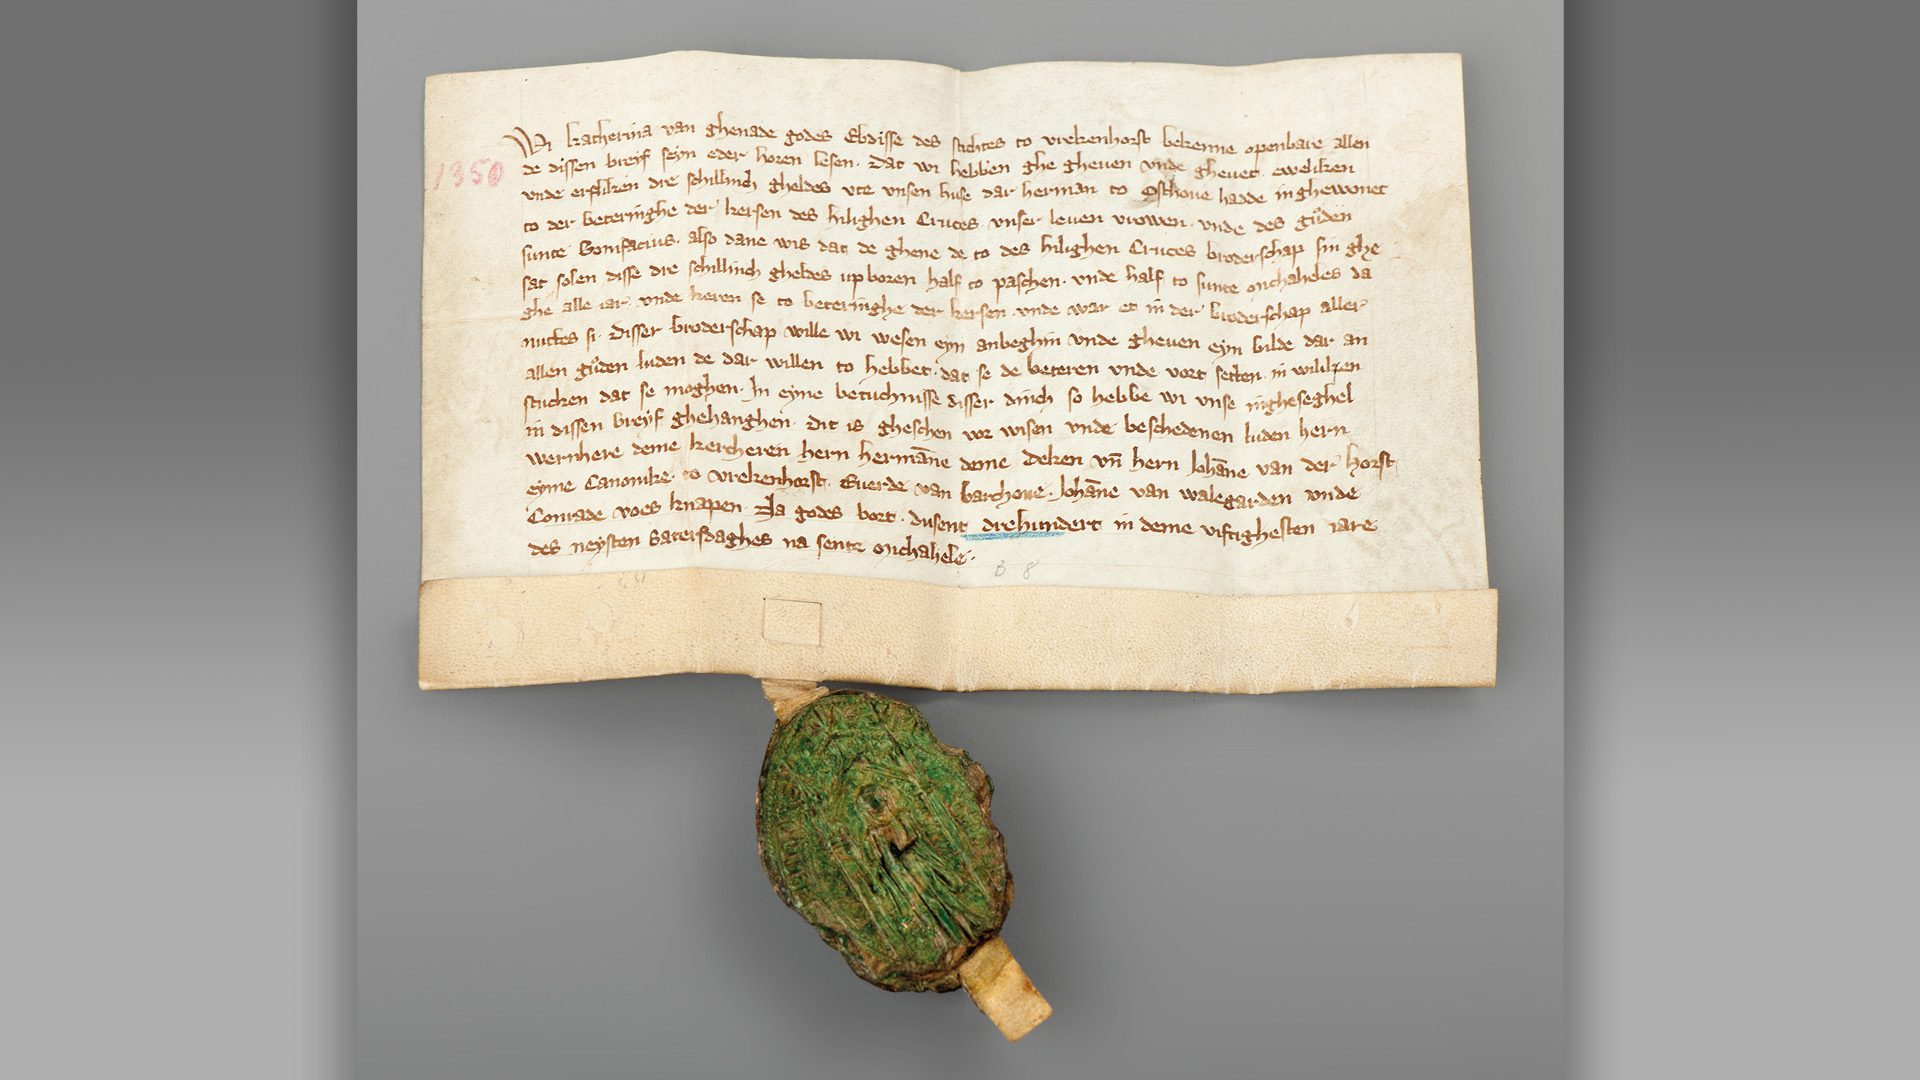 Wi katherina van ghenade godes Ebdisse des stichtes to vrekenhorst bekenne openbare allen
1350
de dissen breyf seyn eder horen lesen. Dat wi hebben ghe gheven unde ghevet. eweliken
unde erfliken dre schillinch gheldes ute unsen huse dar herman to Osthove hadde inghewonet
to der beteringhe der kersen des hilighen Cruces. unser leven vrowen. unde des guͦden
sunte Bonifacius. also dane wis dat de ghene de to des hilighen Cruces broderschap sin ghe
sat solen disse dre schillinch gheldes up boren half to paschen. unde half to sunte michaheles da
ghe alle iar. unde keren se to beteringhe der kersen. unde war et in der broderschap aller
nuttes si. Disser broderschap wille wi wesen eyn anbeghin unde gheven eyn bilde dar an
allen guͦden luden de dar willen to hebbet. dat se de beteren unde vort setten. in wiliken
stucken dat se moghen. In eyme betuchnisse disser dinch so hebbe wi unse ingheseghel
in dissen breyf ghehanghen. Dit is gheschen vor wisen unde beschedenen luden hern
wernhere deme kercheren hern hermāne deme deken un̄ hern Johāne van der horst
eyme Canonike to vrekenhorst. Everde van barchove. Johāne van walegarden unde
Conrade voes knapen. Na godes bort. dusent drehundert in deme viftighesten iare
des neysten satersdaghes na sente michahele.
B 8